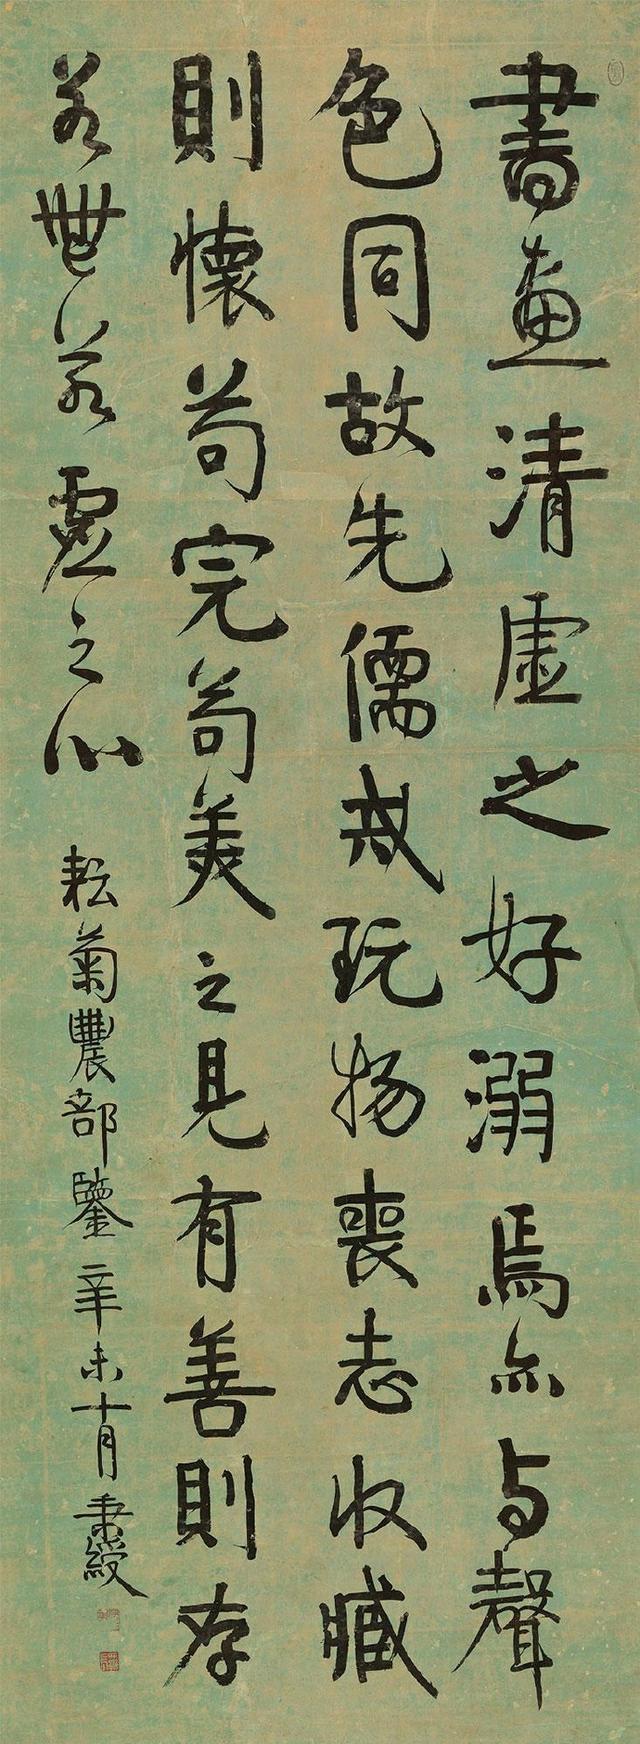 書畫清虛之好溺焉亦与聲
色同故先儒戒玩物喪志收臧
則懷苟完苟美之見有善則存
若無若虛之心
耘菊農部鑒辛未十月秉綬